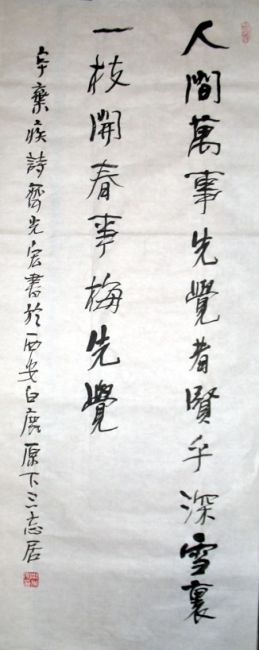 人間萬事先覺者賢乎深雪裏
一枝開春事梅先覺
辛棄疾詩齊先宏書於西安白鹿原下三志居